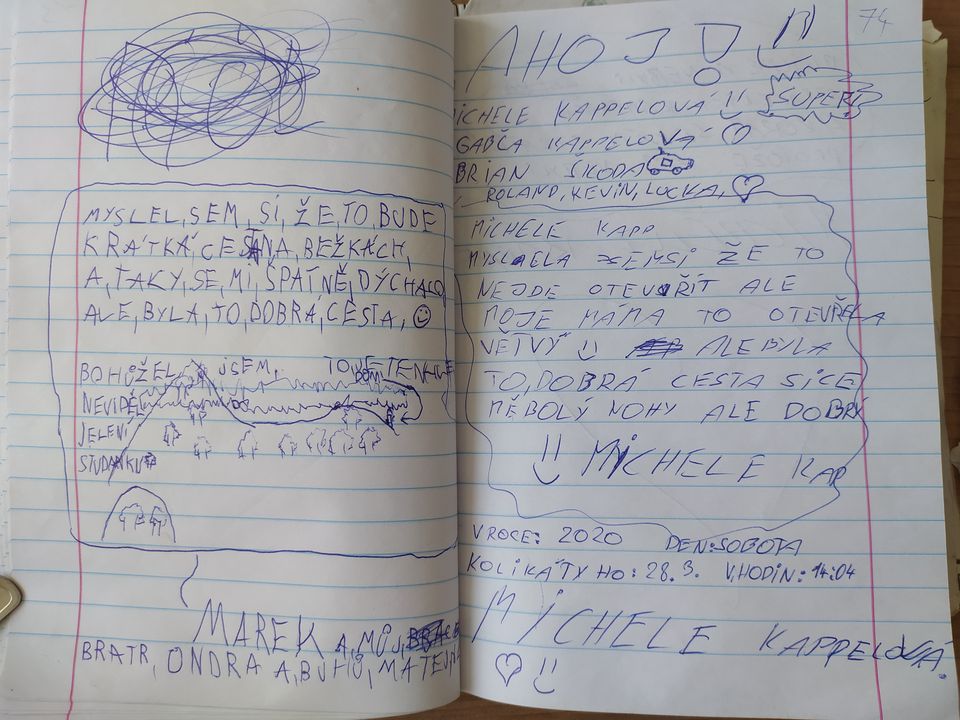 MYSLEL, SEM, SI, ŽE, TO, BUDE
KRÁTKÁ, CESTA, NA, BEŽKÁCH,
A, TAKY, SE, MI, ŠPATNĚ, DÝCHALO
ALE, BYLA, TO, DOBRÁ, CESTA,
BOHUŽEL, JSEM, TO JE TEN
NEVIDĚL
JELENÍ
STUDÁNKU
MAREK A, MŮJ,
BRATR, ONDRA A,
74
AHOJ!
MICHELE KAPPELOVÁ SUPER
GABČA KAPPELOVÁ
BRIAN ŠKODA
ROLAND, KEVIN, LUCKA,
MICHELE KAPP
MYSLELA SEMSI ŽE TO
NEJDE OTEVŘÍT ALE
MOJE MÁMA TO OTEVŘELA
VĚTVÝ ALEBYLA
TO, DOBRÁ CESTA SICE
MĚBOLÝ NOHY ALE DOBRÝ
MICHELE KAP
V ROCE: 2020 DEN: SOBOTA
KOLIKÁTY HO: 28. 3. V, HODIN: 14:04
MICHELE KAPPELOVÁ.